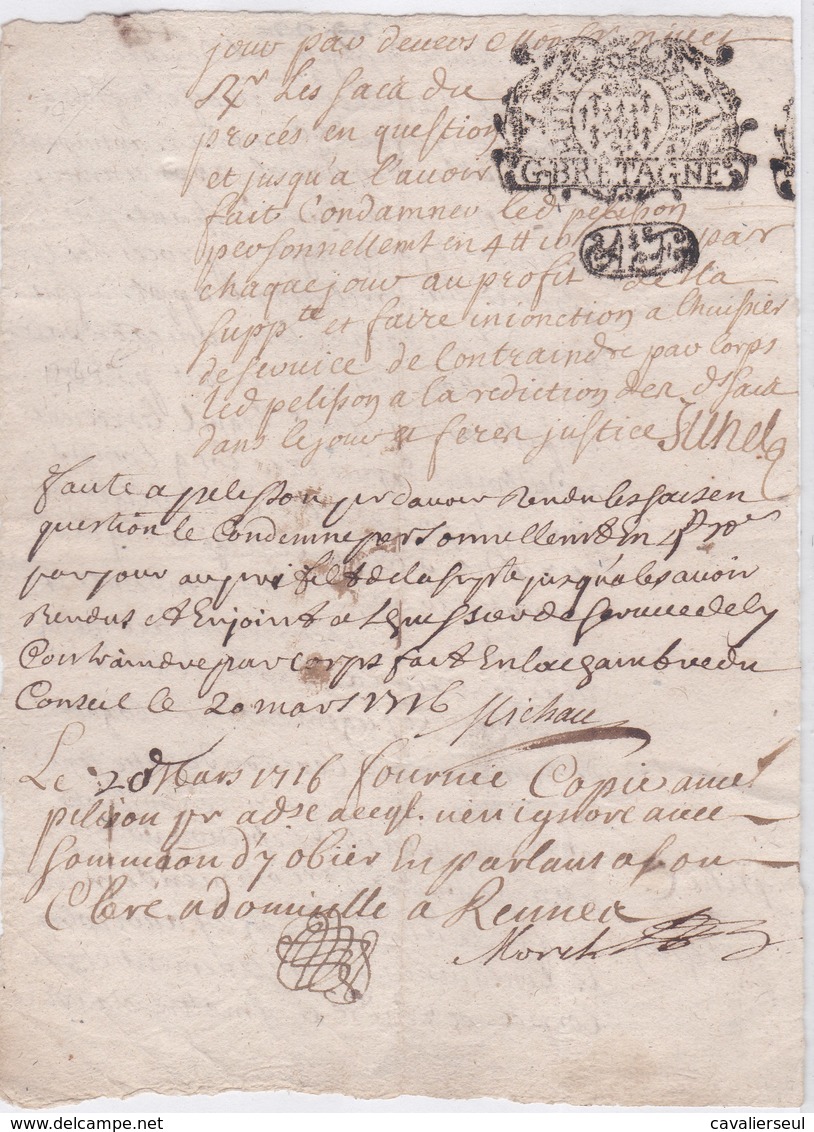 jour par devers Monsr
Rr Les sacs du
procés en question
et jusqu'a l'avoir
fait Condamner led pelisson
personnellemt en 4tt 10s par
chaque jour au profit de la
suppte et faire inionction a lhuissier
de service de Contraindre par corps
led pelisson a la rediction den ds sacs
dans le jour et ferez justice Junel
G·BRETAGNE
faute a pelisson pr davoir Rendu les sacs en
question le Condemne personnellemt En 4tt 10s
par jour au profilt de la supte jusqua les avoir
Rendus et Enjoint a Lhuissier de service de ly
Contraindre par corps fait En la chambre du
Conseil le 20 mars 1716 Michau
Le 20e Mars 1716 fournie Copie a me
pelison pr adse a ce ql. nen ignore avec
sommaon d'y obier En parlant a son
Clerc a domicille a Rennes
cavalierseul